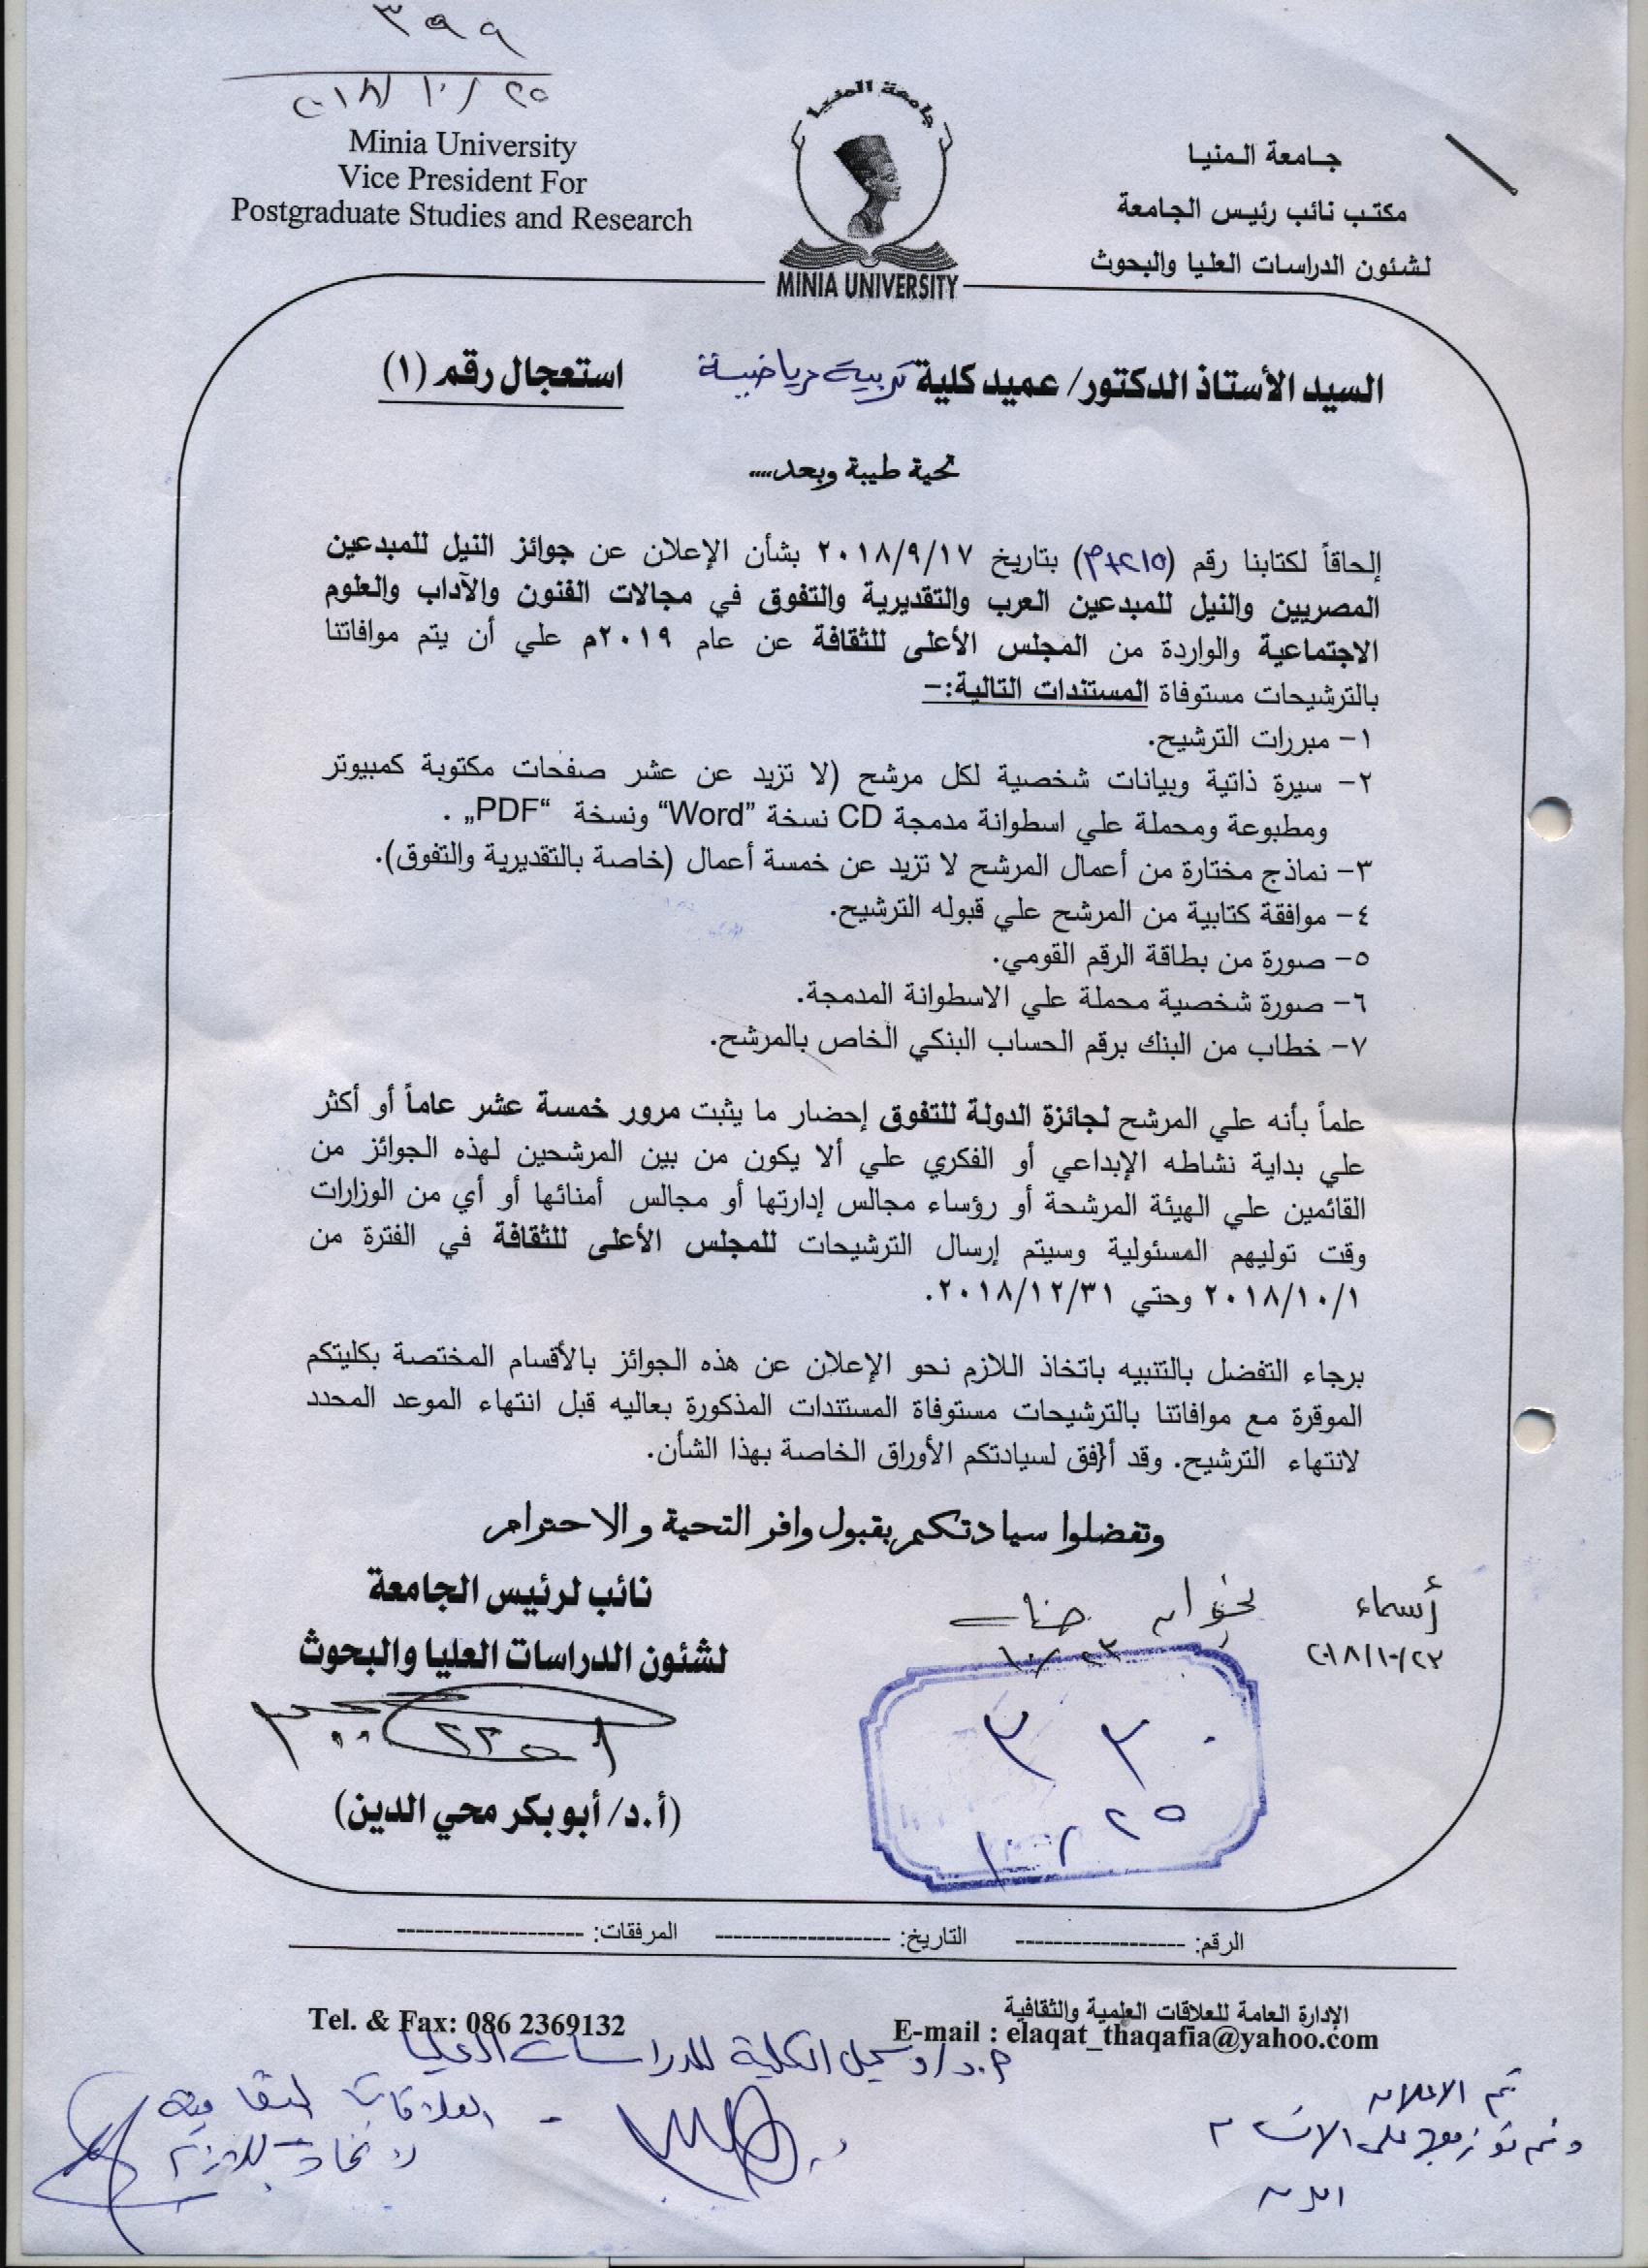 ٣٩٩
٢٠١٨/١٠/٢٥
Minia University
Vice President For
Postgraduate Studies and Research
جامعة المنيا
MINIA UNIVERSITY
جامعة المنيا
مكتب نائب رئيس الجامعة
لشئون الدراسات العليا والبحوث
السيد الأستاذ الدكتور/ عميد كلية تربية رياضية استعجال رقم (١)
تحية طيبة وبعد....
إلحاقاً لكتابنا رقم بتاريخ ٢٠١٨/٩/١٧ بشأن الإعلان عن جوائز النيل للمبدعين
المصريين والنيل للمبدعين العرب والتقديرية والتفوق في مجالات الفنون والآداب والعلوم
الاجتماعية والواردة من المجلس الأعلى للثقافة عن عام ٢٠١٩م علي أن يتم موافاتنا
بالترشيحات مستوفاة المستندات التالية:-
١- مبررات الترشيح.
٢- سيرة ذاتية وبيانات شخصية لكل مرشح (لا تزيد عن عشر صفحات مكتوبة كمبيوتر
ومطبوعة ومحملة علي اسطوانة مدمجة CD نسخة "Word" ونسخة "PDF„ .
٣- نماذج مختارة من أعمال المرشح لا تزيد عن خمسة أعمال (خاصة بالتقديرية والتفوق).
٤- موافقة كتابية من المرشح علي قبوله الترشيح.
٥- صورة من بطاقة الرقم القومي.
٦- صورة شخصية محملة علي الاسطوانة المدمجة.
٧- خطاب من البنك برقم الحساب البنكي الخاص بالمرشح.
علماً بأنه علي المرشح لجائزة الدولة للتفوق إحضار ما يثبت مرور خمسة عشر عاماً أو أكثر
علي بداية نشاطه الإبداعي أو الفكري علي ألا يكون من بين المرشحين لهذه الجوائز من
القائمين علي الهيئة المرشحة أو رؤساء مجالس إدارتها أو مجالس أمنائها أو أي من الوزارات
وقت توليهم المسئولية وسيتم إرسال الترشيحات للمجلس الأعلى للثقافة في الفترة من
٢٠١٨/١٠/١ وحتي ٢٠١٨/١٢/٣١.
برجاء التفضل بالتنبيه باتخاذ اللازم نحو الإعلان عن هذه الجوائز بالأقسام المختصة بكليتكم
الموقرة مع موافاتنا بالترشيحات مستوفاة المستندات المذكورة بعاليه قبل انتهاء الموعد المحدد
لانتهاء الترشيح. وقد أ{فق لسيادتكم الأوراق الخاصة بهذا الشأن.
وتفضلوا سيادتكم بقبول وافر التحية والاحترام
نائب لرئيس الجامعة
لشئون الدراسات العليا والبحوث
(أ.د/ أبو بكر محي الدين)
أسماء
٢٠١٨/١٠/٢٣
١٠/٢٣
٣٣٠
١٠/٢٥
الرقم: ------------------ التاريخ: ------------------- المرفقات: --------------------
الإدارة العامة للعلاقات العلمية والثقافية
Tel. & Fax: 086 2369132 E-mail : elaqat_thaqafia@yahoo.com
أ.د/ وكيل الكلية للدراسات العليا
- العلاقات الثقافية
لاتخاذ اللازم
تم الاعلان
وتم توزيعه على الاقسام